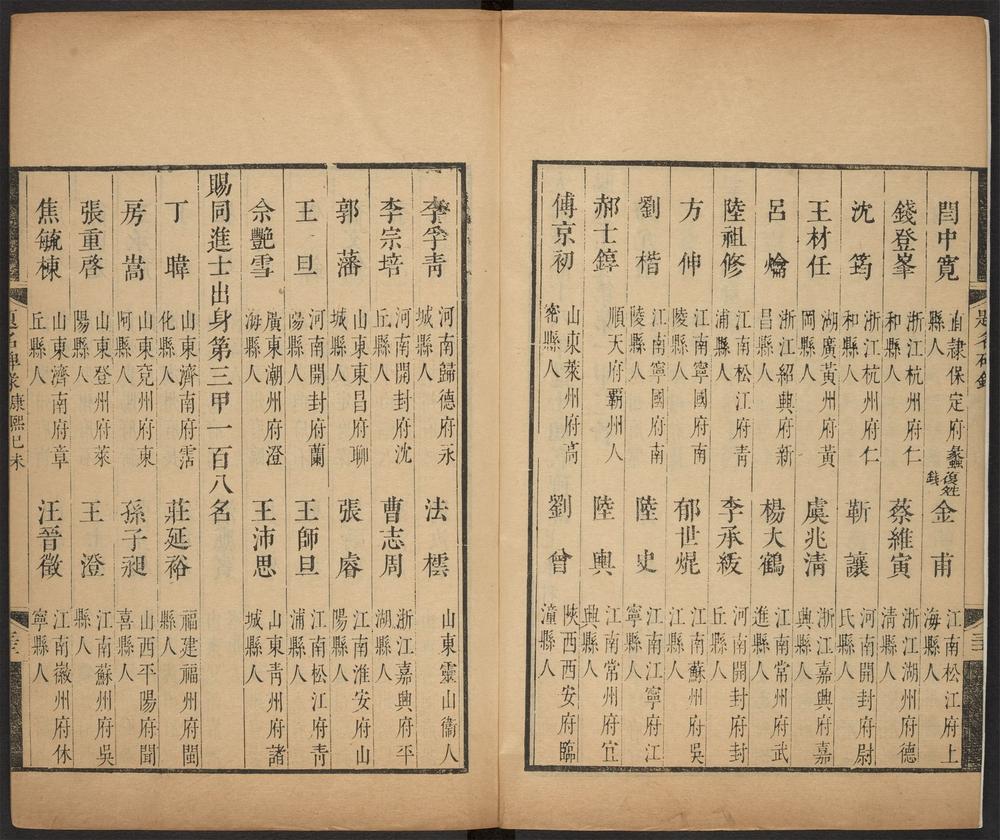 閆中寬 直隸保定府蠡縣人 復姓錢 金甫 江南松江府上海縣人
錢登峯 浙江杭州府仁和縣人 蔡維寅 浙江湖州府德清縣人
沈筠 浙江杭州府仁和縣人 靳讓 河南開封府尉氏縣人
王材任 湖廣黃州府黃岡縣人 虞兆清 浙江嘉興府嘉興縣人
呂 浙江紹興府新昌縣人 楊大鶴 江南常州府武進縣人
陸祖修 江南松江府青浦縣人 李承紱 河南開封府封丘縣人
方伸 江南寧國府南陵縣人 郁世焜 江南蘇州府吳江縣人
劉楷 江南寧國府南陵縣人 陸史 江南江寧府江寧縣人
郝士錞 順天府霸州人 陸輿 江南常州府宜興縣人
傅京初 山東萊州府高密縣人 劉曾 陝西西安府臨潼縣人
李孚青 河南歸德府永城縣人 法樗 山東靈山衞人
李宗培 河南開封府沈丘縣人 曹志周 浙江嘉興府平湖縣人
郭藩 山東東昌府聊城縣人 張睿 江南淮安府山陽縣人
王旦 河南開封府蘭陽縣人 王師旦 江南松江府青浦縣人
佘艷雪 廣東潮州府澄海縣人 王沛思 山東青州府諸城縣人
賜同進士出身第三甲一百八名
丁暐 山東濟南府霑化縣人 莊延裕 福建福州府閩縣人
房嵩 山東兗州府東阿縣人 孫子昶 山西平陽府聞喜縣人
張重啓 山東登州府萊陽縣人 王澄 江南蘇州府吳縣人
焦毓棟 山東濟南府章丘縣人 汪晉徵 江南徽州府休寧縣人
題名碑錄 康熙己未